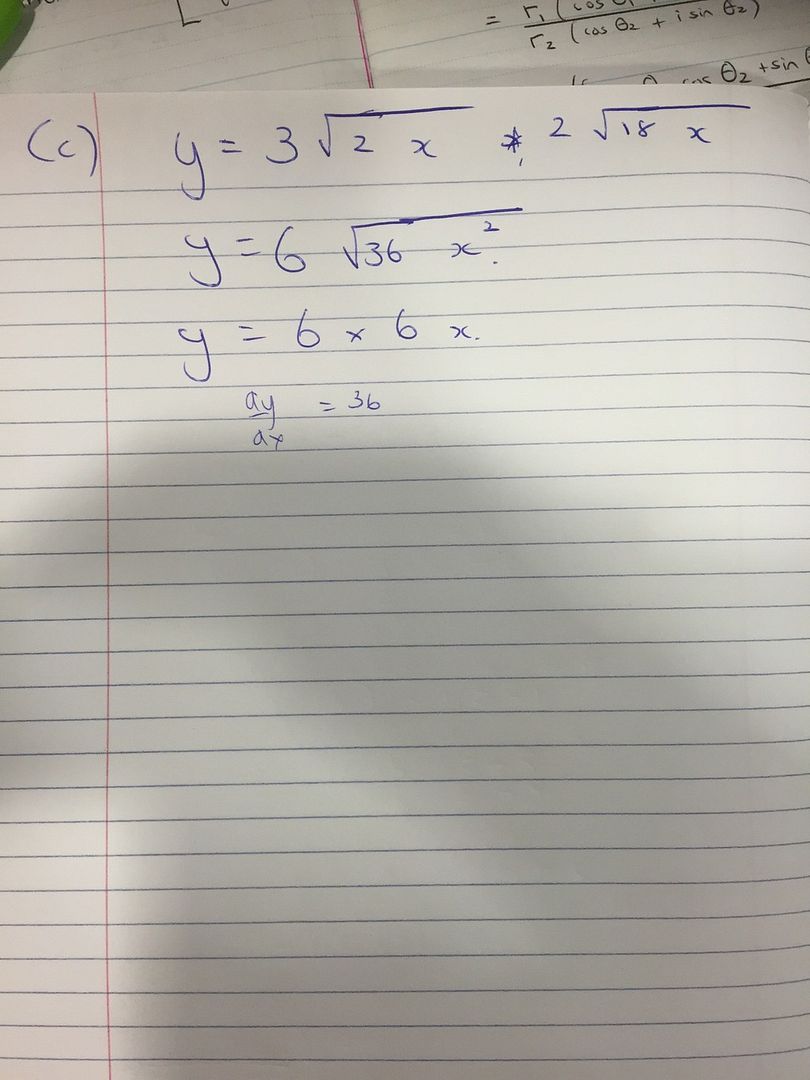 = r₁ (cos
r₂ (cos θ₂ + i sin θ₂)
cos θ₂ + sin
(c) y = 3 √2 x * 2 √18 x
y = 6 √36 x².
y = 6 × 6 x.
dy/dx = 36